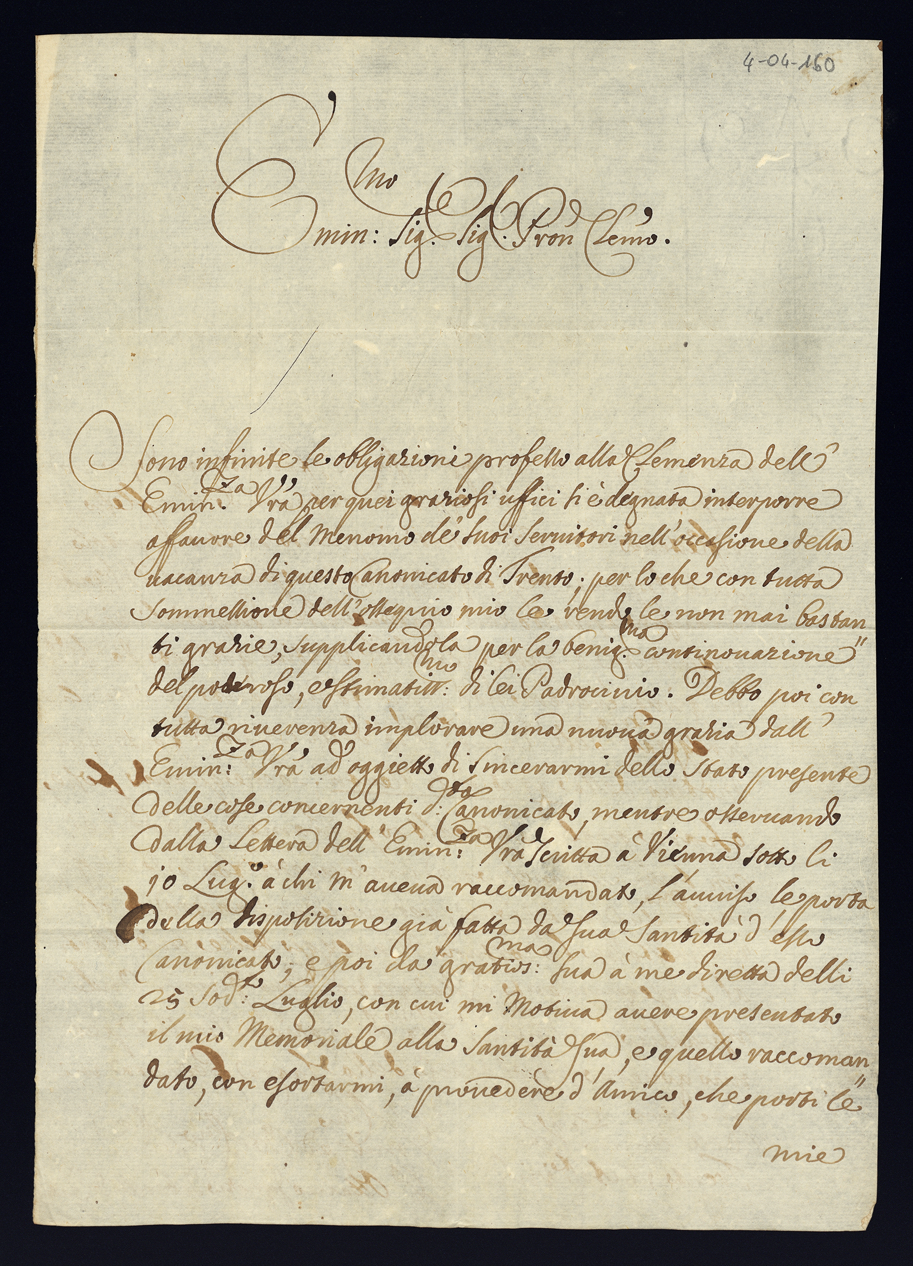 4-04-160
Emin:mo Sig:e Sig:e Pron Clem̃o.
Sono infinite le obligazioni professo alla Clemenza dell'
Emin:za Vrã per quei graziosi uffici si è degnata interporre
affauore del Menomo de' suoi Seruitori nell'occasione della
uacanza di questo Canonicato di Trento; per lo che con tutta
Sommessione dell'ossequio mio le rendo le non mai bastan
ti grazie, supplicandola per la benig:ma continouazione
del poderoso, e stimatiss:mo di lei Padrocinio. Debbo poi con
tutta riuerenza implorare una nuoua grazia dall'
Emin:za Vrã ad oggietto di sincerarmi dello stato presente
delle cose concernenti d:to Canonicato, mentre osseruando
dalla Lettera dell'Emin:za Vrã scritta à Vienna sotto li
10 Lug.o à chi m'aueua raccomandato, l'auuiso le porta
della disposizione già fatta da Sua Santità d'esso
Canonicato; e poi da gratios:ma Sua à me diretta delli
25 Sod:o Luglio, con cui mi Motiua auere presentato
il mio Memoriale alla Santità Sua, e quello raccoman
dato, con esortarmi, à prouedere d'Amico, che porti le"
mie